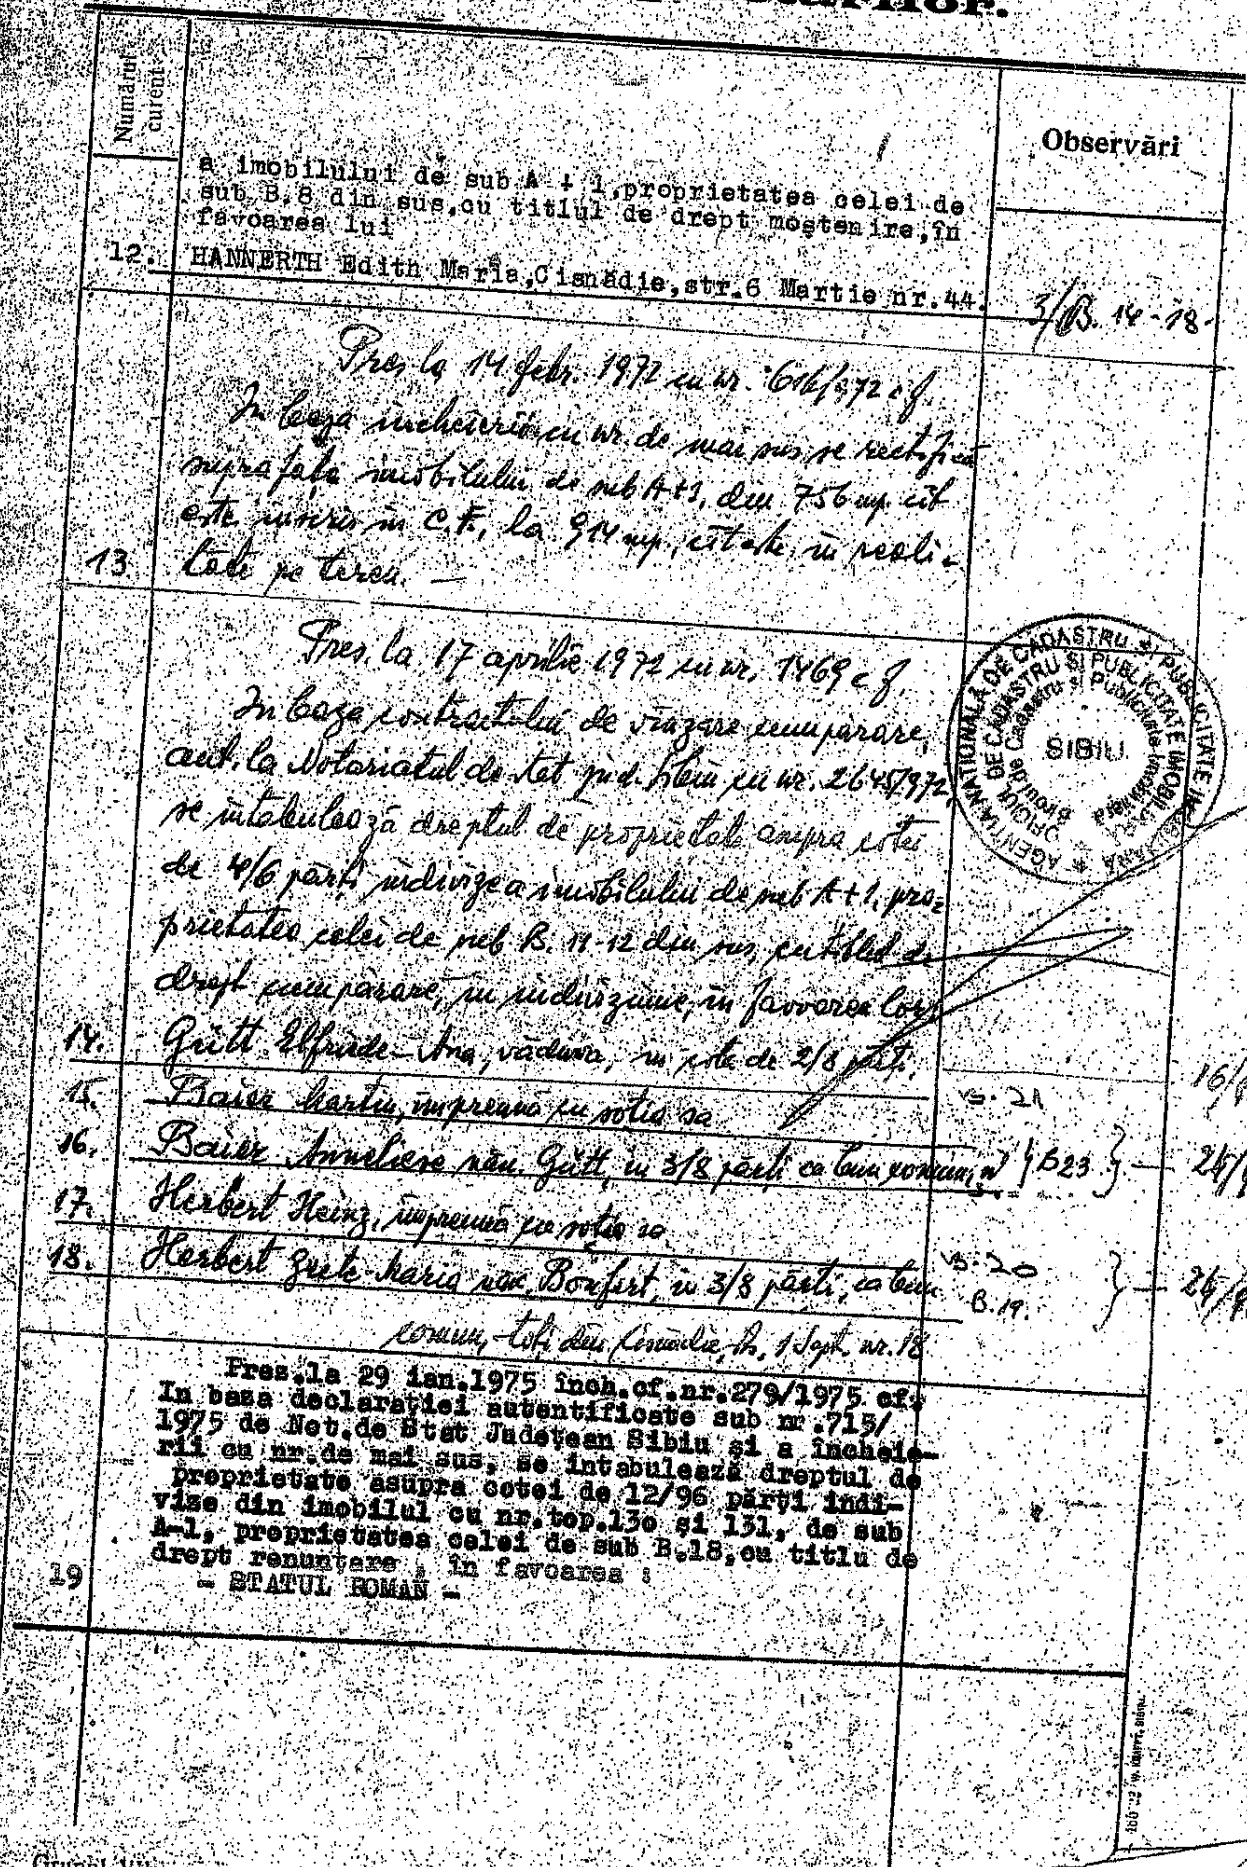 Numărul
curent
Observări
a imobilului de sub A + 1, proprietatea celei de
sub B.8 din sus, cu titlul de drept moştenire, în
favoarea lui
12. HANNERTH Edith Maria, Cisnădie, str. 6 Martie nr. 44.
3/B. 14-18.
Pres. la 14 febr. 1972 cu nr. 616/972 c f.
In baza încheierii cu nr. de mai sus, se rectifică
suprafaţa imobilului de sub A+1, din 756 mp. cît
este inscris in C.F., la 914 mp., cît este in reali-
13 tate pe teren. —
Pres. la 17 aprilie 1972 cu nr. 1469 c f.
In baza contractului de vînzare cumpărare,
aut. la Notariatul de Stat jud. Sibiu cu nr. 2645/972,
se intabulează dreptul de proprietate asupra cotei
de 4/6 părţi indivize a imobilului de sub A+1, pro-
prietatea celei de sub B. 11-12 din sus, cu titlul de
drept cumpărare, in indiviziune, in favoarea lor:
14. Gütt Elfriede-Ana, văduva, in cota de 2/8 părţi,
15. Baier Martin, impreuna cu sotia sa
B. 21
16. Baier Anneliese năs. Gütt, in 3/8 părţi ca bun comun, şi
B23
17. Herbert Heinz, impreună cu sotia sa
18. Herbert Grete-Maria năs. Bonfert, in 3/8 părti, ca bun
B. 20
B. 19.
comun, toti din Cisnădie, str. 1 Sept. nr. 18
AGENŢIA NAŢIONALĂ DE CADASTRU ŞI PUBLICITATE IMOBILIARĂ
OFICIUL DE CADASTRU ŞI PUBLICITATE IMOBILIARĂ
Biroul de Cadastru şi Publicitate Imobiliară
SIBIU
Pres. la 29 ian. 1975 înch. cf. nr. 279/1975 cf.
In baza declaraţiei autentificate sub nr. 715/
1975 de Not. de Stat Judeţean Sibiu şi a încheie-
rii cu nr. de mai sus, se intabulează dreptul de
proprietate asupra cotei de 12/96 părţi indi-
vize din imobilul cu nr. top. 130 şi 131, de sub
A-1, proprietatea celei de sub B.18, cu titlu de
drept renunţare, în favoarea :
19 - STATUL ROMAN -